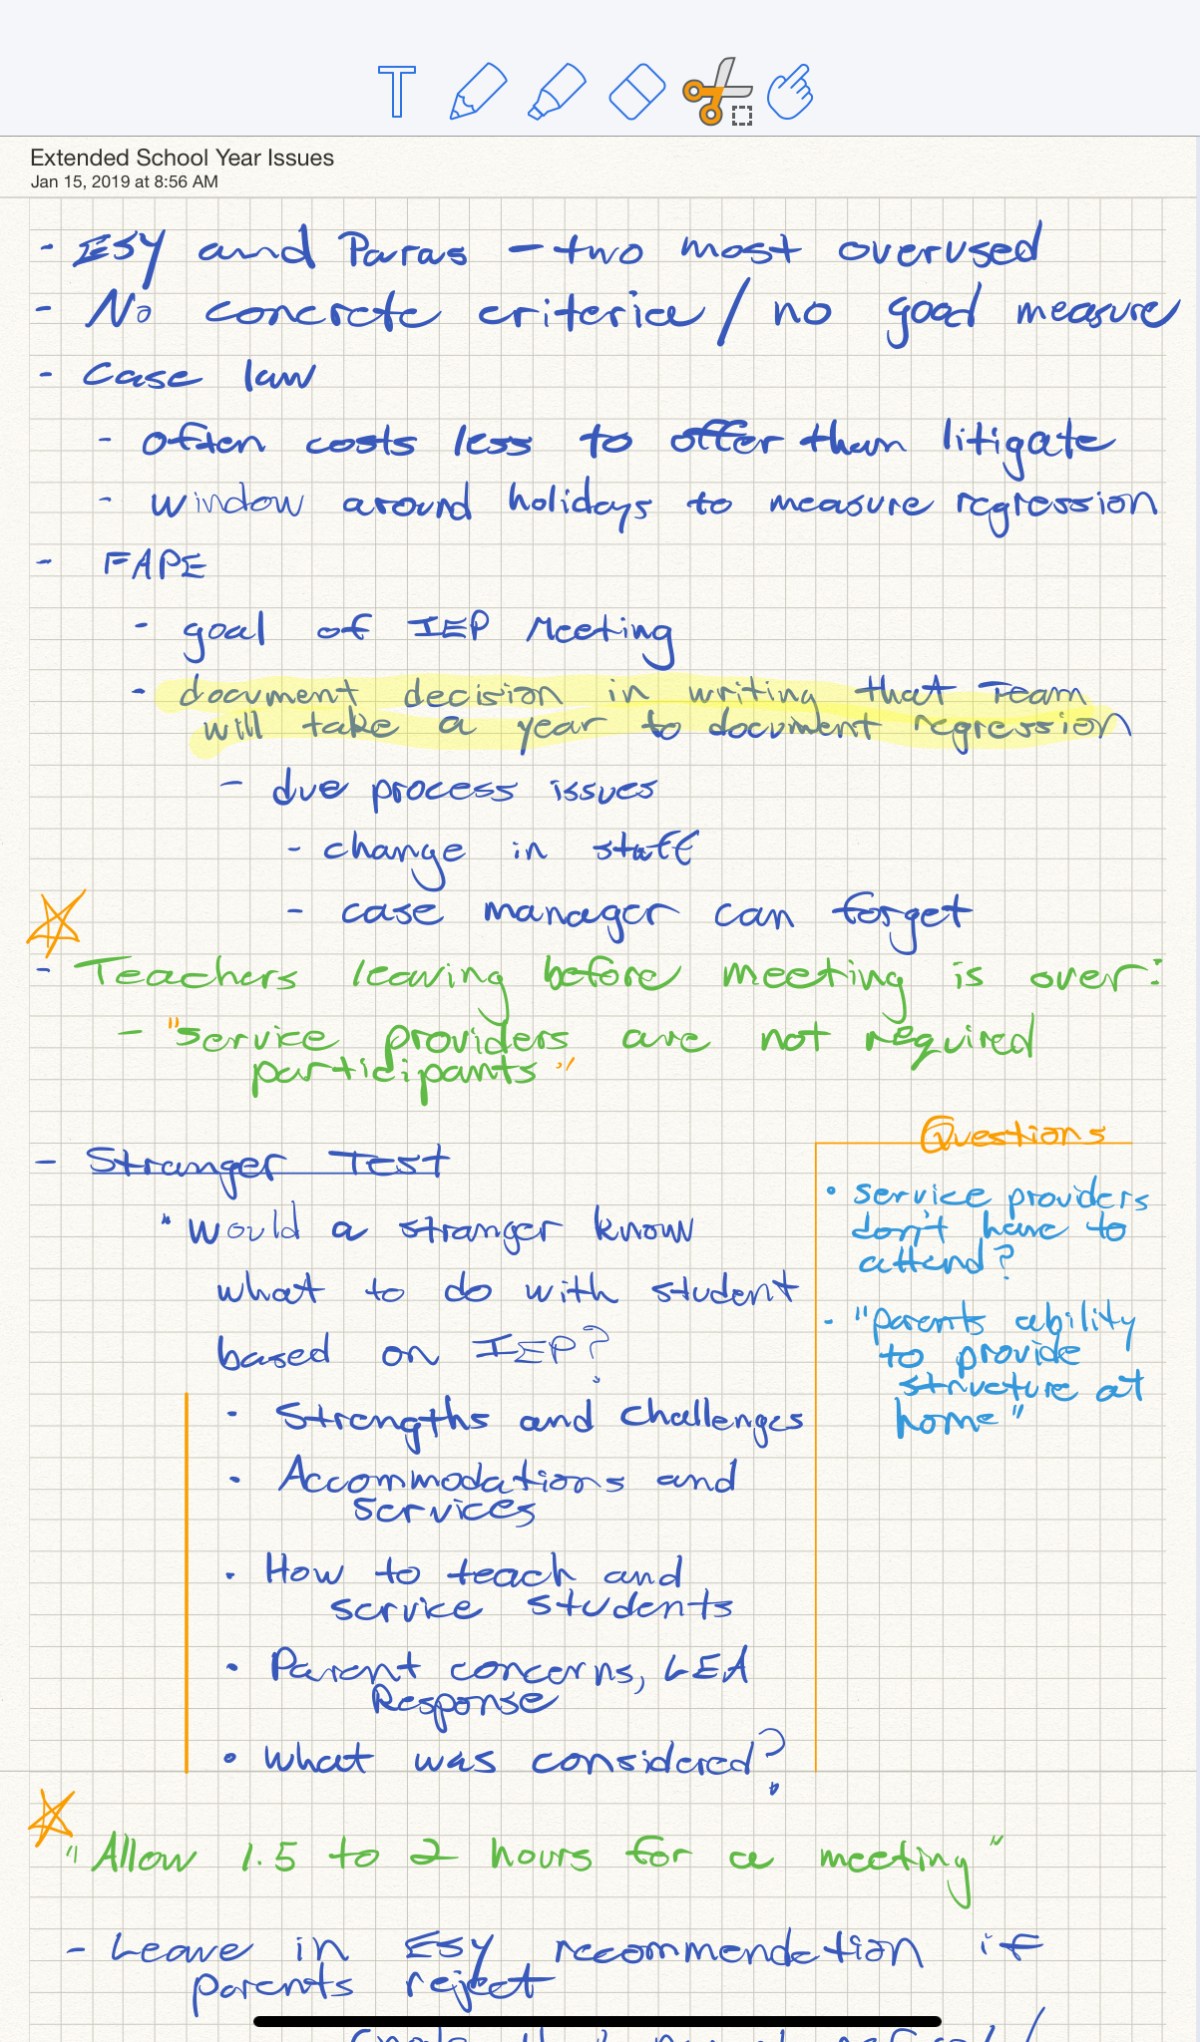 T
Extended School Year Issues
Jan 15, 2019 at 8:56 AM
- ESY and Paras - two most overused
- No concrete criterice / no good measure
- Case law
- often costs less to offer than litigate
- window around holidays to measure regression
- FAPE
- goal of IEP Meeting
- document decision in writing that Team
will take a year to document regression
- due process issues
- change in staff
- case manager can forget
- Teachers leaving before meeting is over:
- "service providers are not required
participants"
- Stranger Test
• would a stranger know
what to do with student
based on IEP?
• Strengths and challenges
• Accommodations and
services
• How to teach and
service students
• Parent concerns, LEA
Response
• what was considered?
Questions
• service providers
don't have to
attend?
- "parents ability
to provide
structure at
home"
"Allow 1.5 to 2 hours for a meeting"
- Leave in ESY recommendation if
parents reject